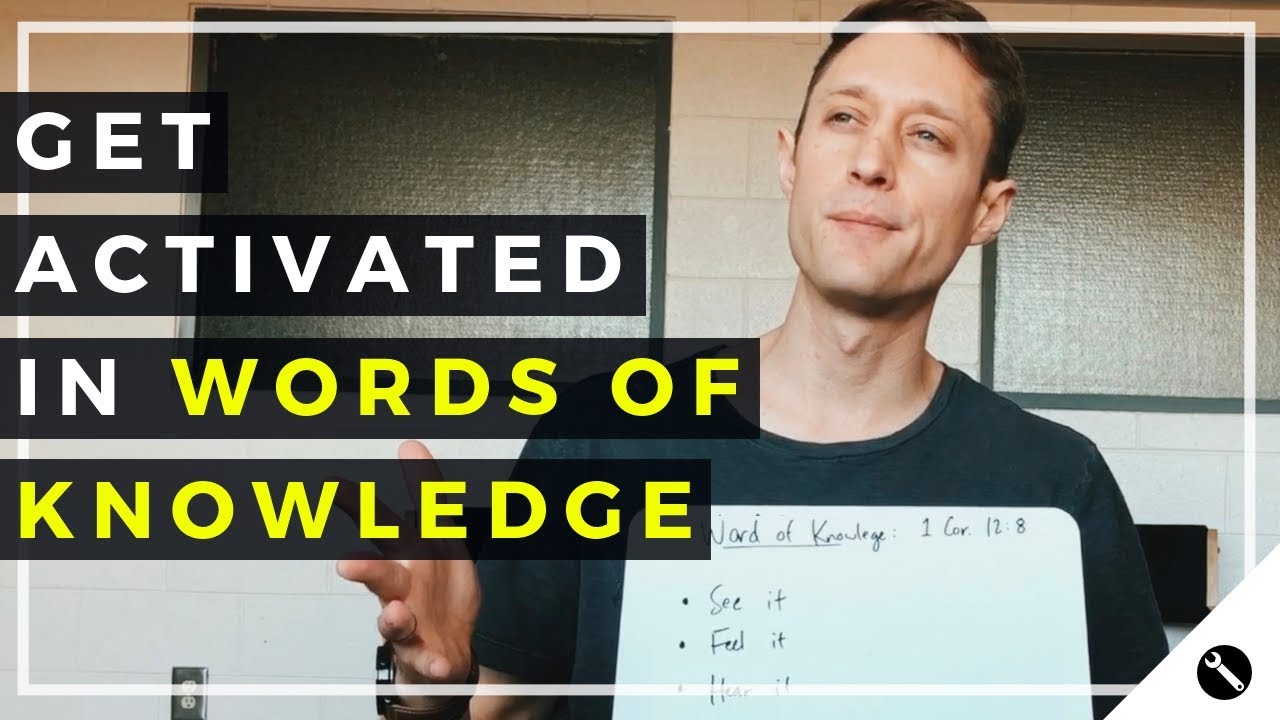 GET
ACTIVATED
IN WORDS OF
KNOWLEDGE
Word of Knowlege: 1 Cor. 12:8
• See it
• Feel it
• Hear it